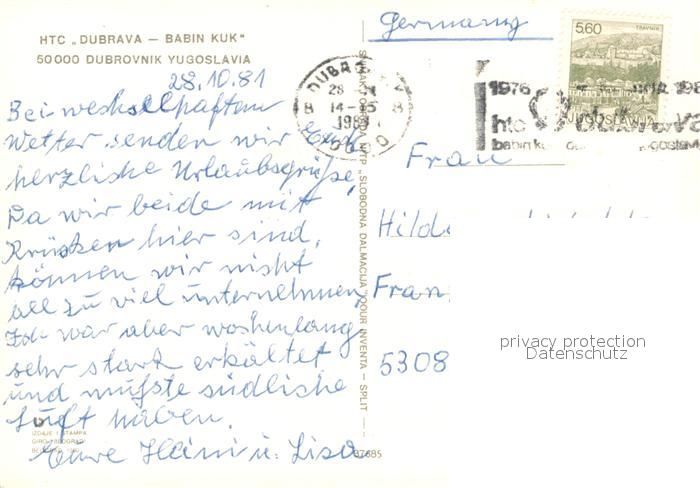 HTC „DUBRAVA — BABIN KUK"
50000 DUBROVNIK YUGOSLAVIA
28.10.81
Bei wechselhaftem
Wetter senden wir Euch
herzliche Urlaubsgrüße,
Da wir beide mit
Krücken hier sind,
können wir nicht
all zu viel unternehmen,
Ich war aber wochenlang
sehr stark erkältet
und mußte südliche
Luft haben.
Eure Häni u. Lisa
IZDAJE I ŠTAMPA
37685
„SLOBODNA DALMACIJA" OOUR INVENTA — SPLIT
Germany
5,60
TRAVNIK
JUGOSLAVIJA
DUBROVNIK
14-15
1976
htc
dubrava
babin kuk
Frau
Hild
Fran
5308
privacy protection
Datenschutz